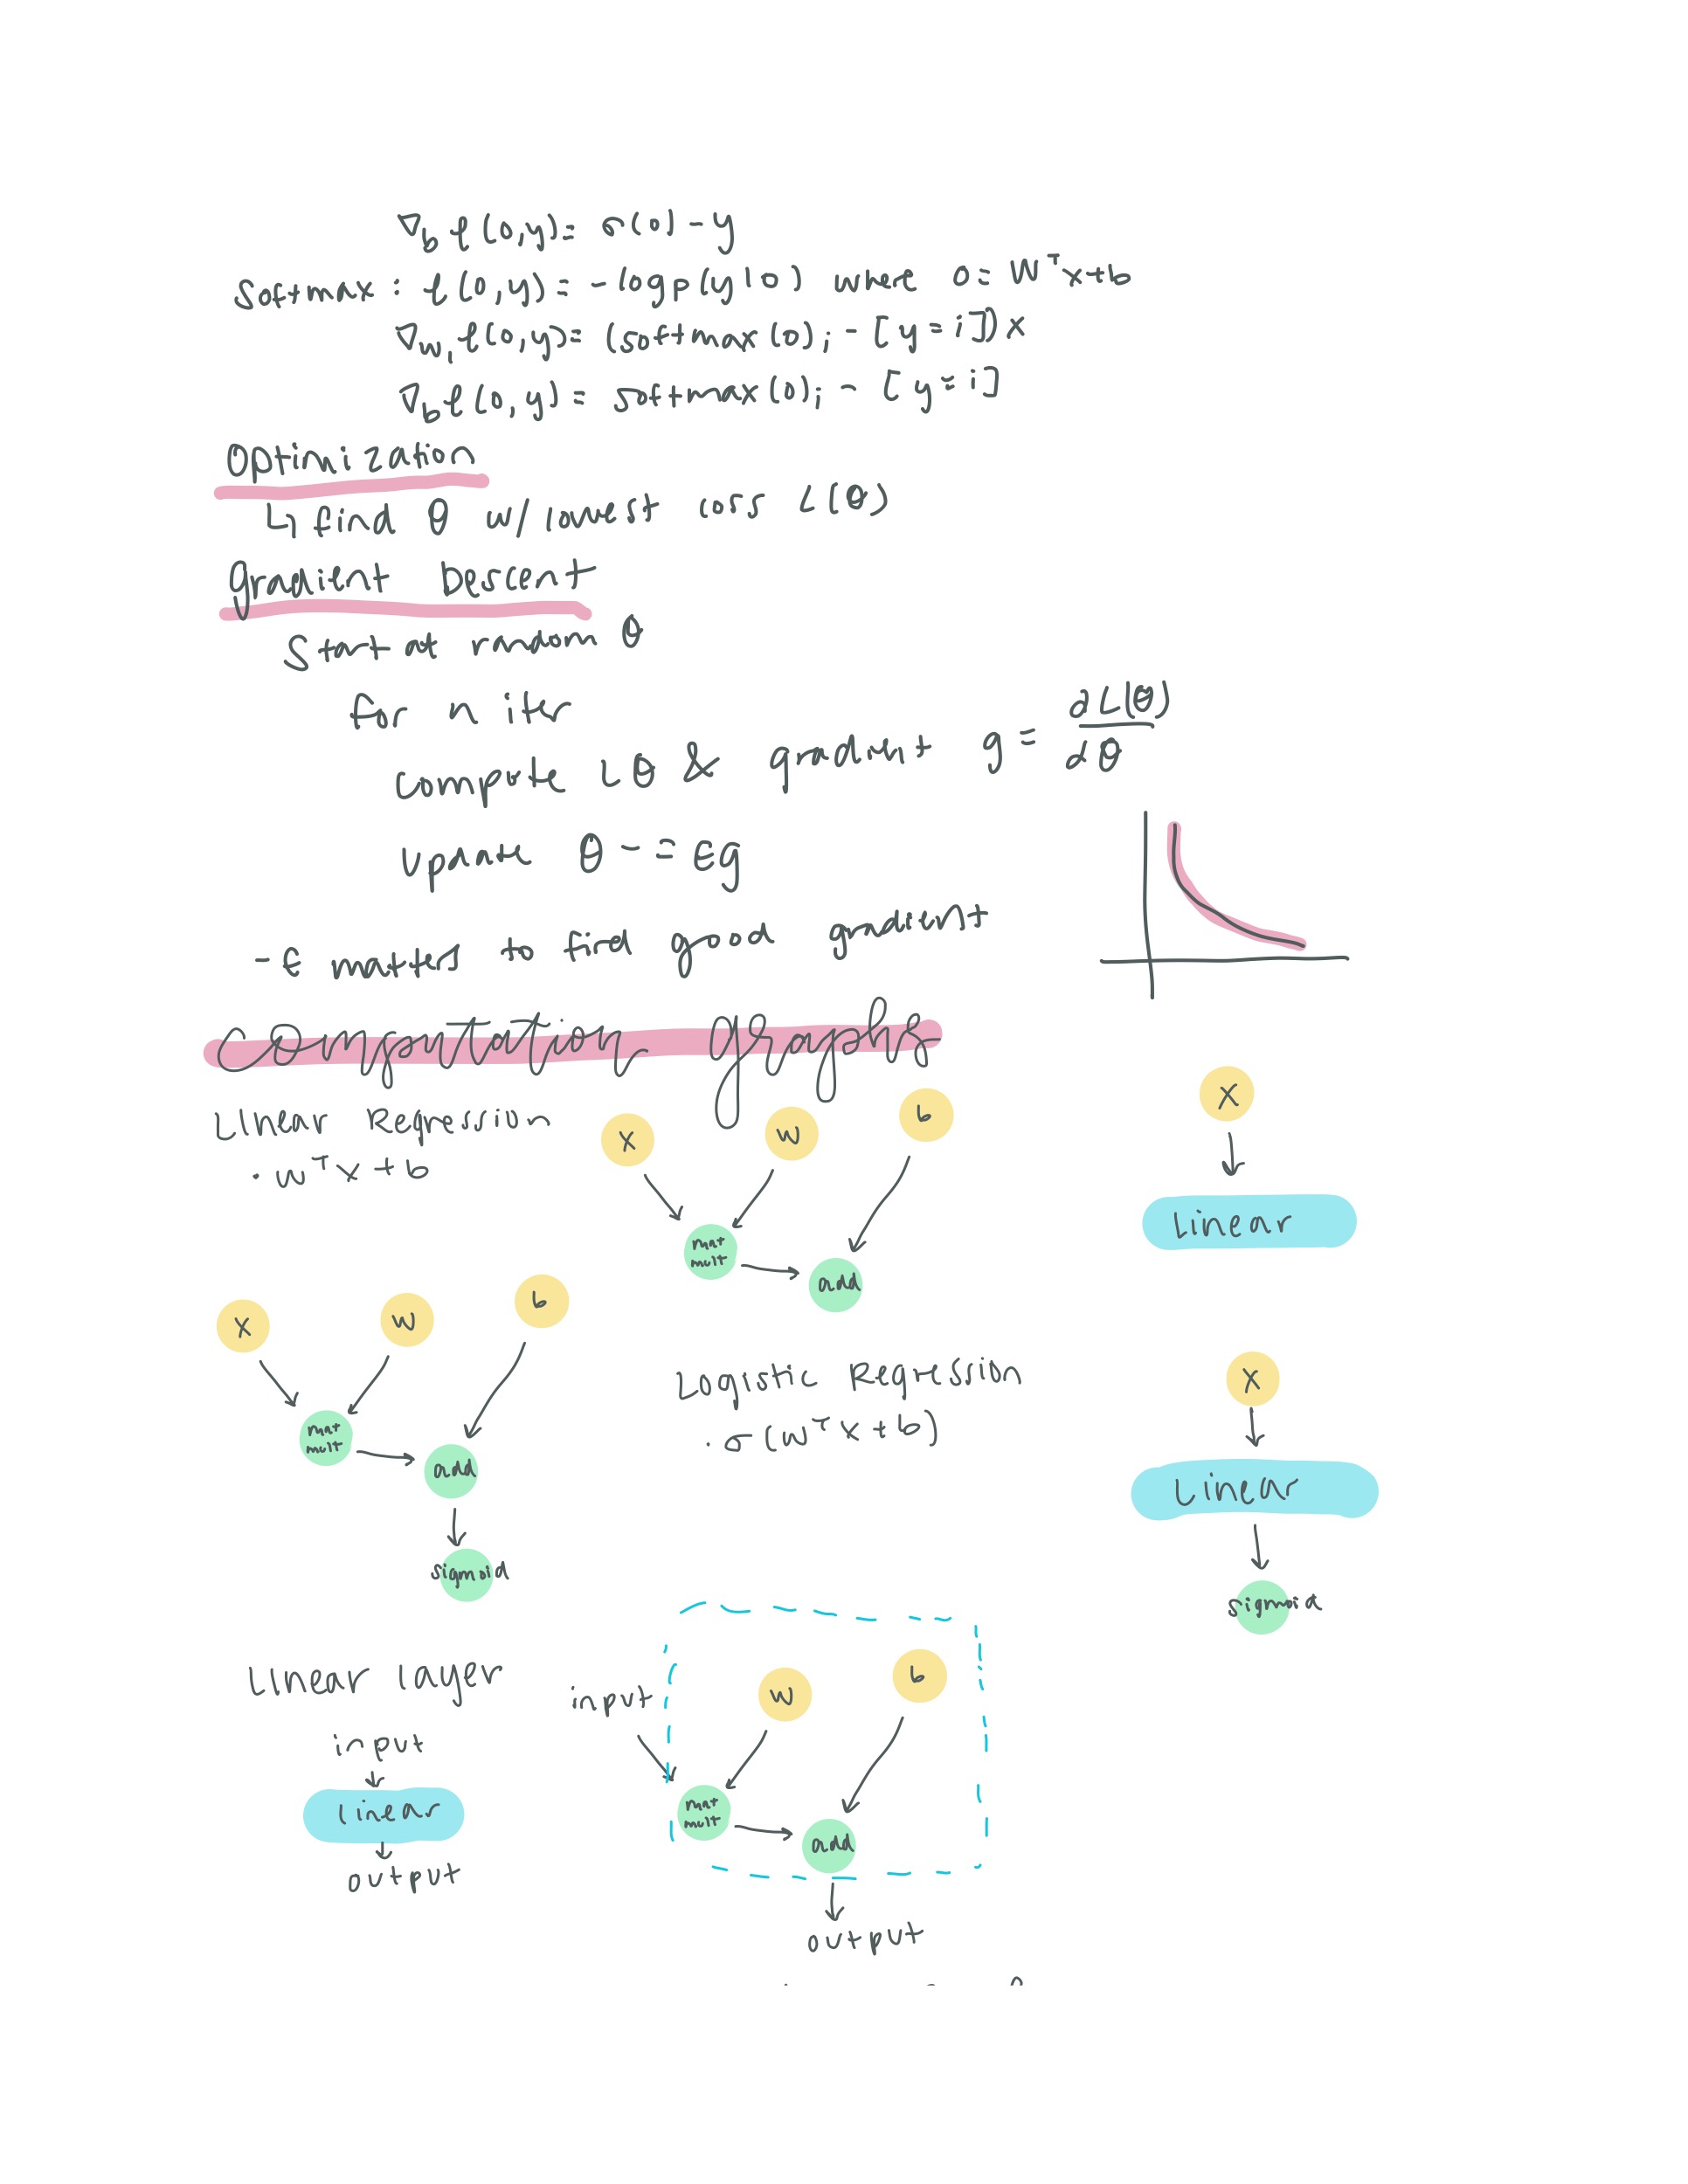 ∇b ℓ(o,y) = σ(o) - y
Softmax : ℓ(o,y) = -log p(y|o) where o = Wᵀx+b
∇w, ℓ(o,y) = (softmax(o)i - [y=i])x
∇b ℓ(o,y) = softmax(o)i - [y=i]
Optimization
↳ find θ w/ lowest loss L(θ)
gradient Descent
Start at random θ
for n iter
compute Lθ & gradient g = ∂L(θ)/∂θ
update θ -= εg
- ε matters to find good gradient
Computation Graphs
Linear Regression
· wᵀx + b
x w b
mat
mult
add
x
Linear
x w b
mat
mult
add
sigmoid
Logistic Regression
· σ(wᵀx + b)
x
Linear
sigmoid
Linear layer
input
linear
output
input
w b
mat
mult
add
output